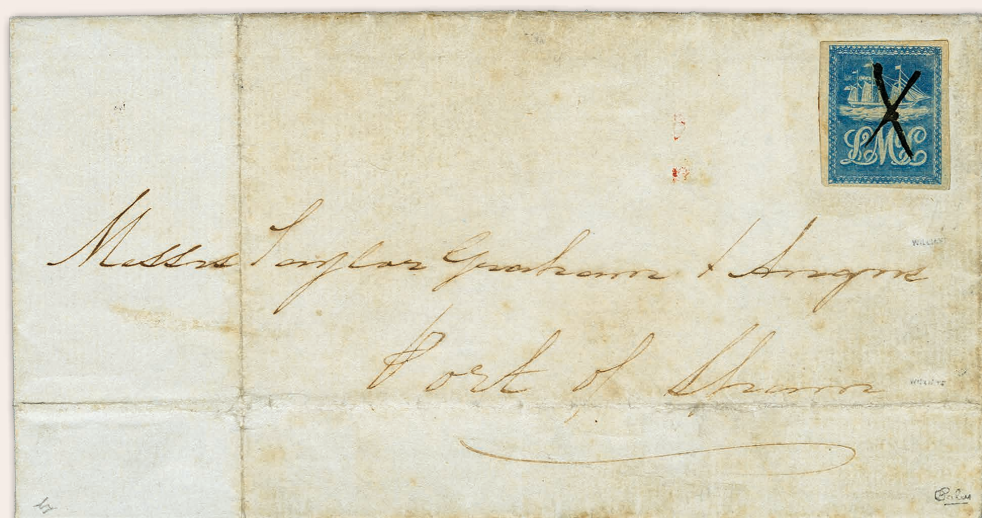 LMcL
Messrs Taylor Graham & Angus
Port of Spain